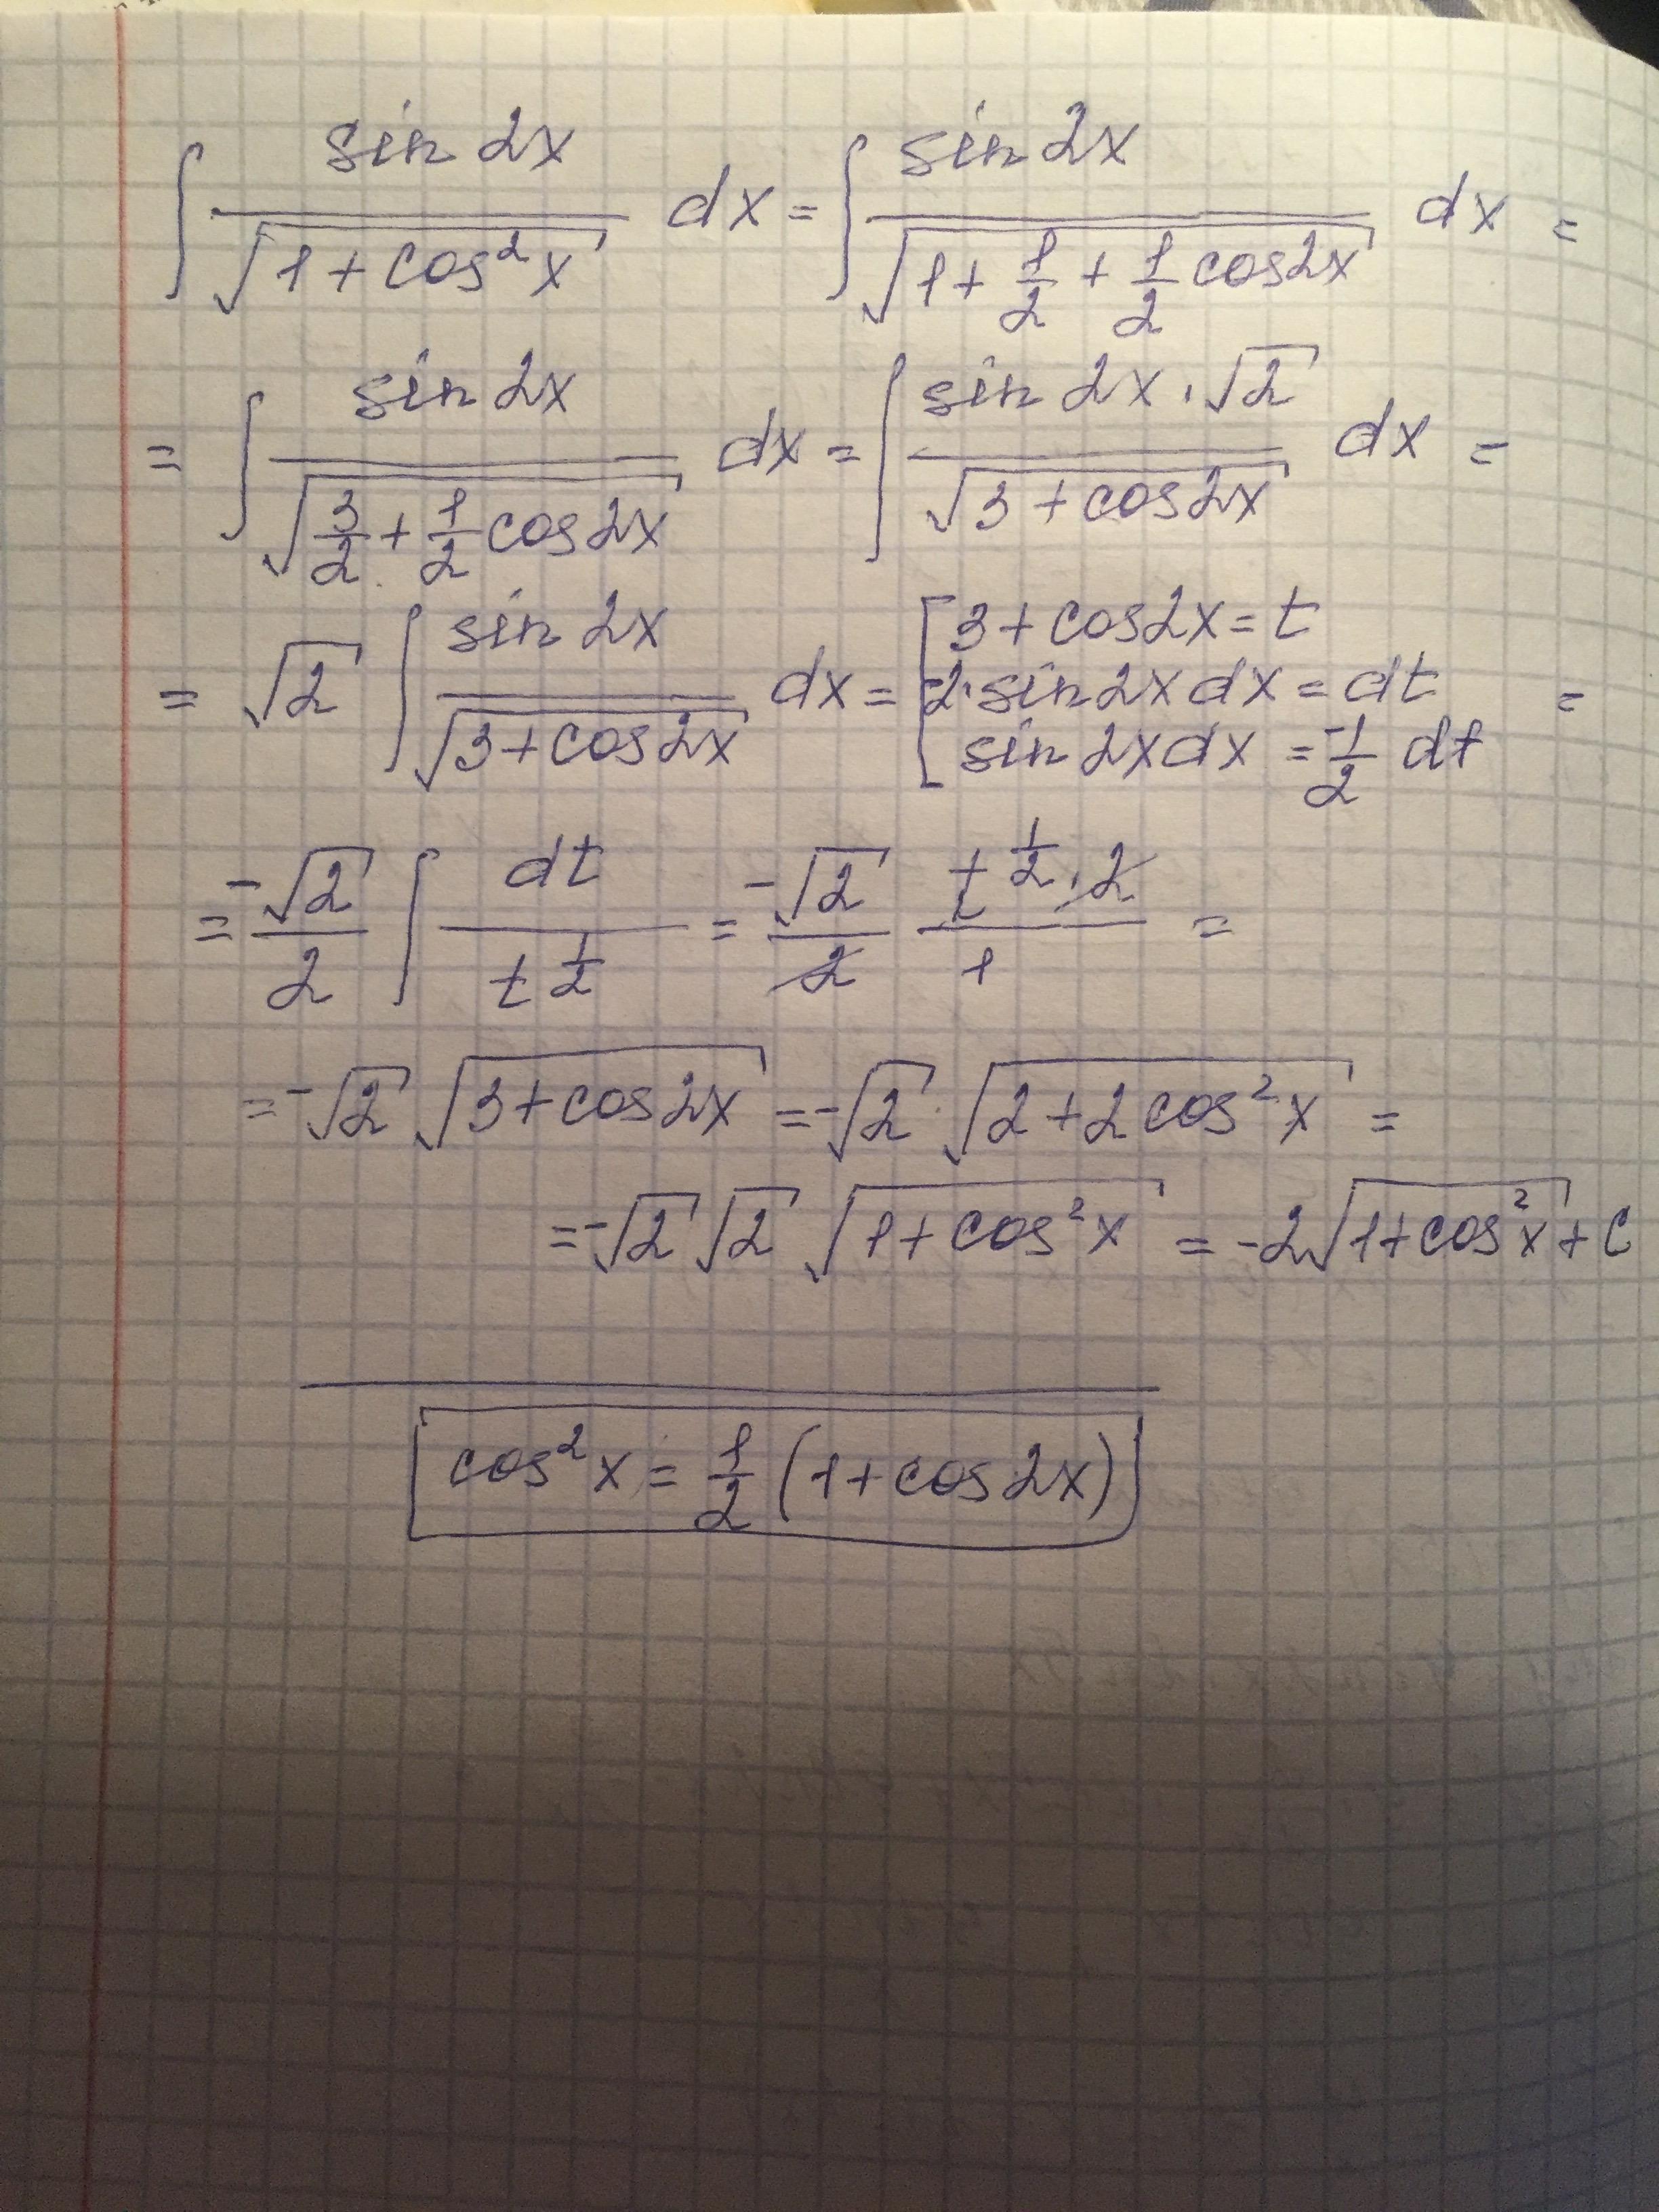 ∫ sin 2x / √(1 + cos² x) dx = ∫ sin 2x / √(1 + 1/2 + 1/2 cos 2x) dx =
= ∫ sin 2x / √(3/2 + 1/2 cos 2x) dx = ∫ sin 2x · √2 / √(3 + cos 2x) dx =
= √2 ∫ sin 2x / √(3 + cos 2x) dx = [ 3 + cos 2x = t
-2 · sin 2x dx = dt =
sin 2x dx = -1/2 dt
= -√2/2 ∫ dt / t^(1/2) = -√2/2 t^(1/2) · 2 / 1 =
= -√2 √(3 + cos 2x) = -√2 · √(2 + 2 cos² x) =
= -√2 √2 √(1 + cos² x) = -2√(1 + cos² x) + C
cos² x = 1/2 (1 + cos 2x)